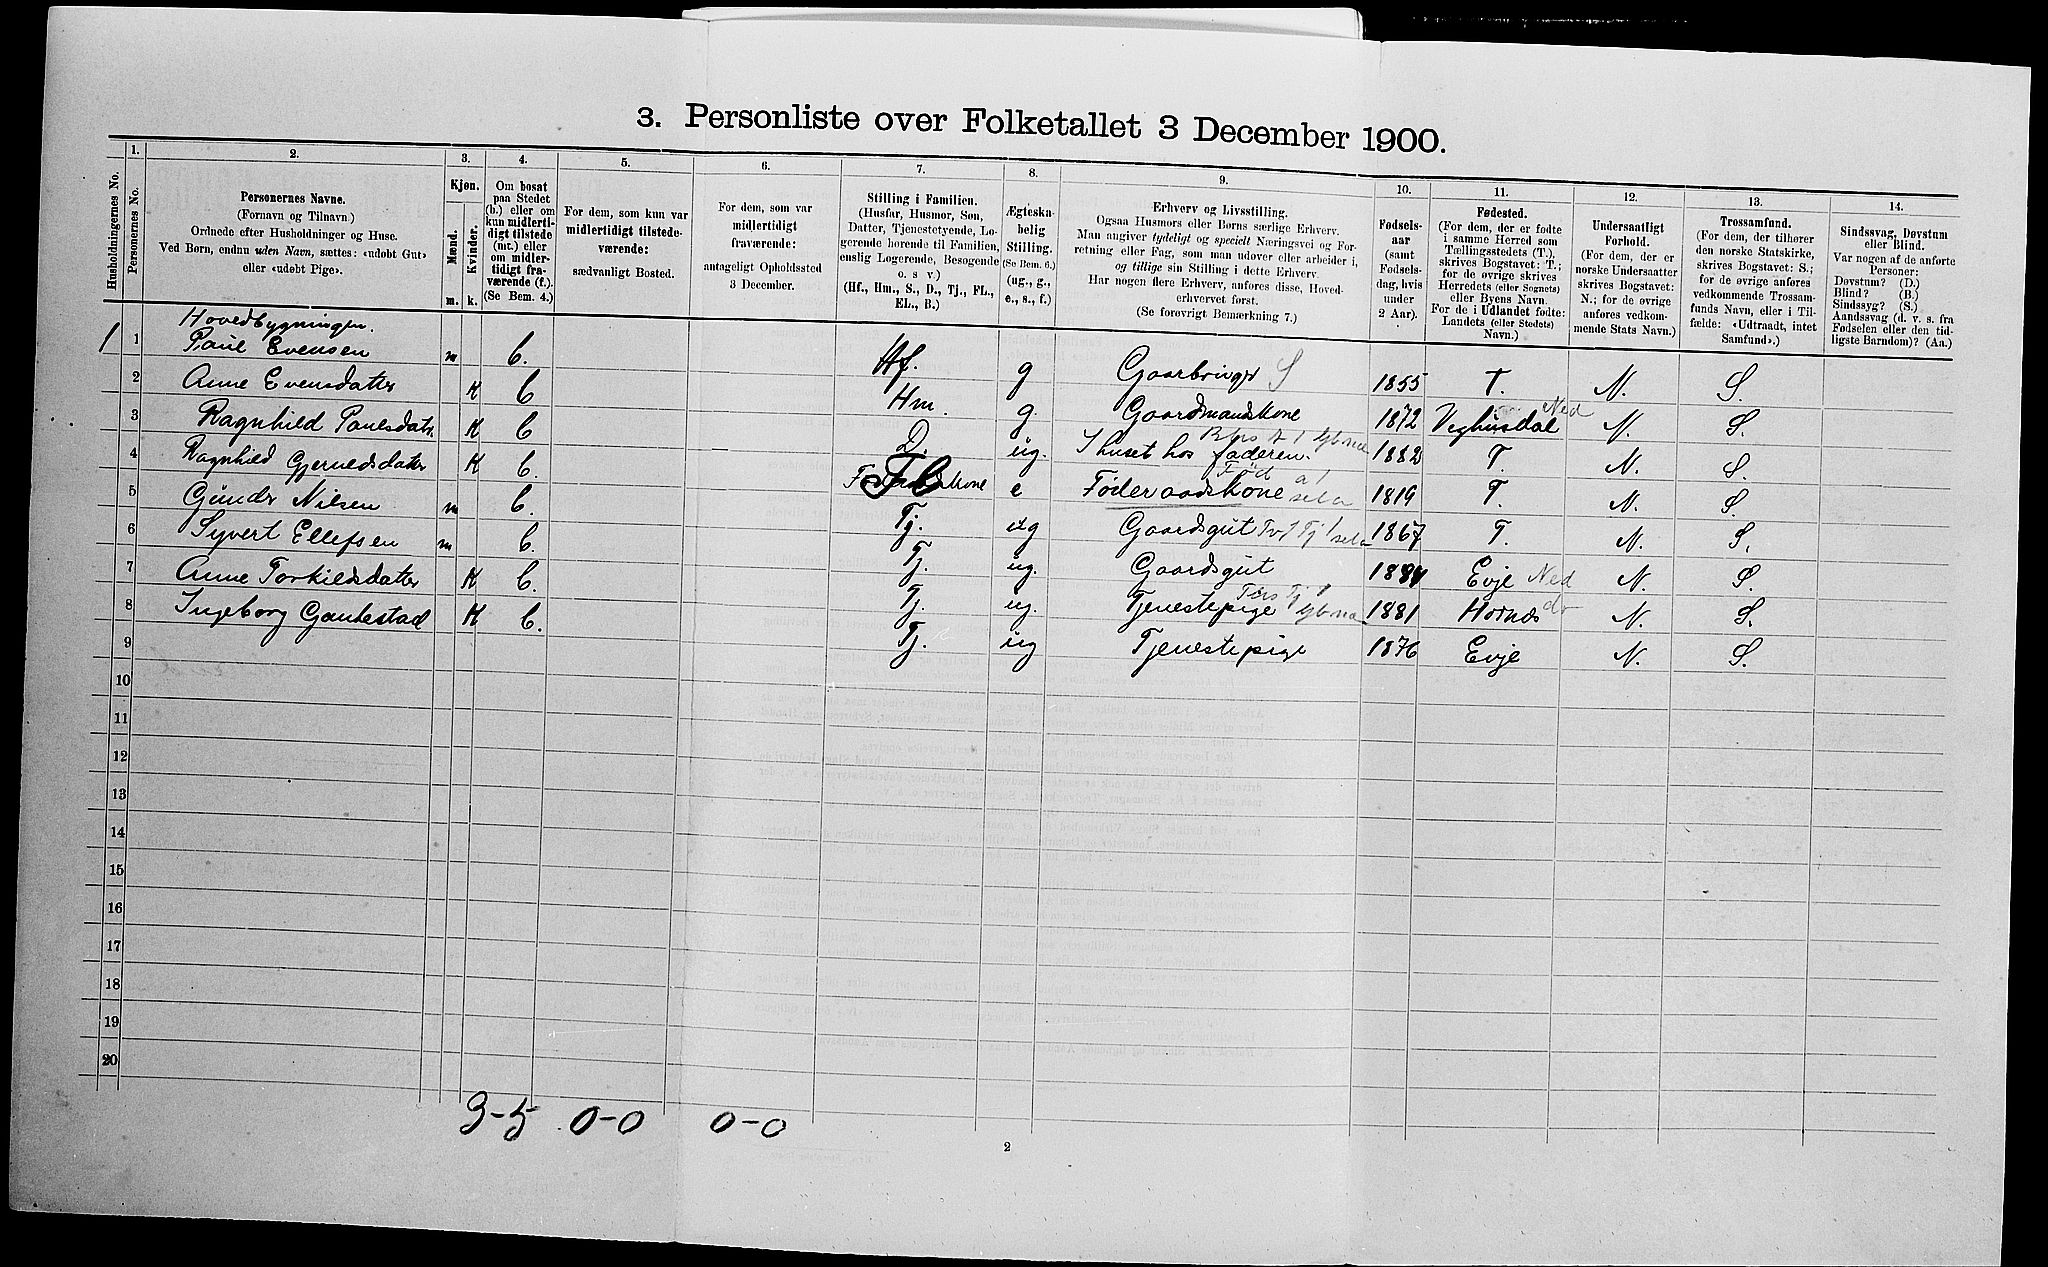 3. Personliste over Folketallet 3 December 1900.
1. 2. 3. 4. 5. 6. 7. 8. 9. 10. 11. 12. 13. 14.
Husholdningernes No.
Personernes No.
Personernes Navne.
(Fornavn og Tilnavn.)
Ordnede efter Husholdninger og Huse.
Ved Børn, endnu uden Navn, sættes: «udøbt Gut»
eller «udøbt Pige».
Kjøn.
Mænd.
Kvinder.
m. k.
Om bosat
paa Stedet
(b.) eller om
kun midlerti-
digt tilstede
(mt.) eller
om midler-
tidigt fra-
værende (f.).
(Se Bem. 4.)
For dem, som kun var
midlertidigt tilstede-
værende:
sædvanligt Bosted.
For dem, som var
midlertidigt
fraværende:
antageligt Opholdssted
3 December.
Stilling i Familien.
(Husfar, Husmor, Søn,
Datter, Tjenestetyende, Lo-
gerende hørende til Familien,
enslig Logerende, Besøgende
o. s v.)
(Hf., Hm., S., D., Tj., FL.,
EL., B.)
Ægteska-
belig
Stilling.
(Se Bem. 6.)
(ug., g.,
e., s., f.)
Erhverv og Livsstilling.
Ogsaa Husmors eller Børns særlige Erhverv.
Man angiver tydeligt og specielt Næringsvei og For-
retning eller Fag, som man udøver eller arbeider i,
og tillige sin Stilling i dette Erhverv.
Har nogen flere Erhverv, anføres disse, Hoved-
erhvervet først.
(Se forøvrigt Bemærkning 7.)
Fødsels-
aar
(samt
Fødsels-
dag, hvis
under
2 Aar).
Fødested.
(For dem, der er fødte
i samme Herred som
Tællingsstedets (T.),
skrives Bogstavet: T.;
for de øvrige skrives
Herredets (eller Sognets)
eller Byens Navn.
For de i Udlandet fødte:
Landets (eller Stedets)
Navn.)
Undersaatligt
Forhold.
(For dem, der er
norske Undersaatter
skrives Bogstavet:
N.; for de øvrige
anføres vedkom-
mende Stats Navn.)
Trossamfund.
(For dem, der tilhører
den norske Statskirke,
skrives Bogstavet: S.;
for de øvrige anføres
vedkommende Trossam-
funds Navn, eller i Til-
fælde: «Udtraadt, intet
Samfund».)
Sindssvag, Døvstum
eller Blind.
Var nogen af de anførte
Personer:
Døvstum? (D.)
Blind? (B.)
Sindssyg? (S.)
Aandssvag (d. v. s. fra
Fødselen eller den tid-
ligste Barndom)? (Aa.)
Hovedbygningen.
1 1 Paul Evensen m b. Hf. g Gaarbruger S 1855 T. N. S.
2 Anne Evensdatter K b Hm. g. Gaardmandskone 1872 Veghusdal Ned N. S.
3 Ragnhild Paulsdatr. K b D. ug. I huset hos faderen. 1882 T. N. S.
4 Ragnhild Gjernedsdatter K b. FL e Føderaadskone 1819 T. N. S.
5 Gunder Nilsen m b. Tj. ug Gaardsgut Tj 1867 T. N. S.
6 Syvert Ellefsen m b. Tj. ug. Gaardsgut Evje Ned N. S.
7 Anne Torkildsdatter K b. Tj. ug. Tjenestepige 1881 Hornæs do N. S.
8 Ingeborg Gautestad K b. Tj. ug Tjenestepige 1876 Evje N. S.
9
10
11
12
13
14
15
16
17
18
19
20
3-5 0-0 0-0
2